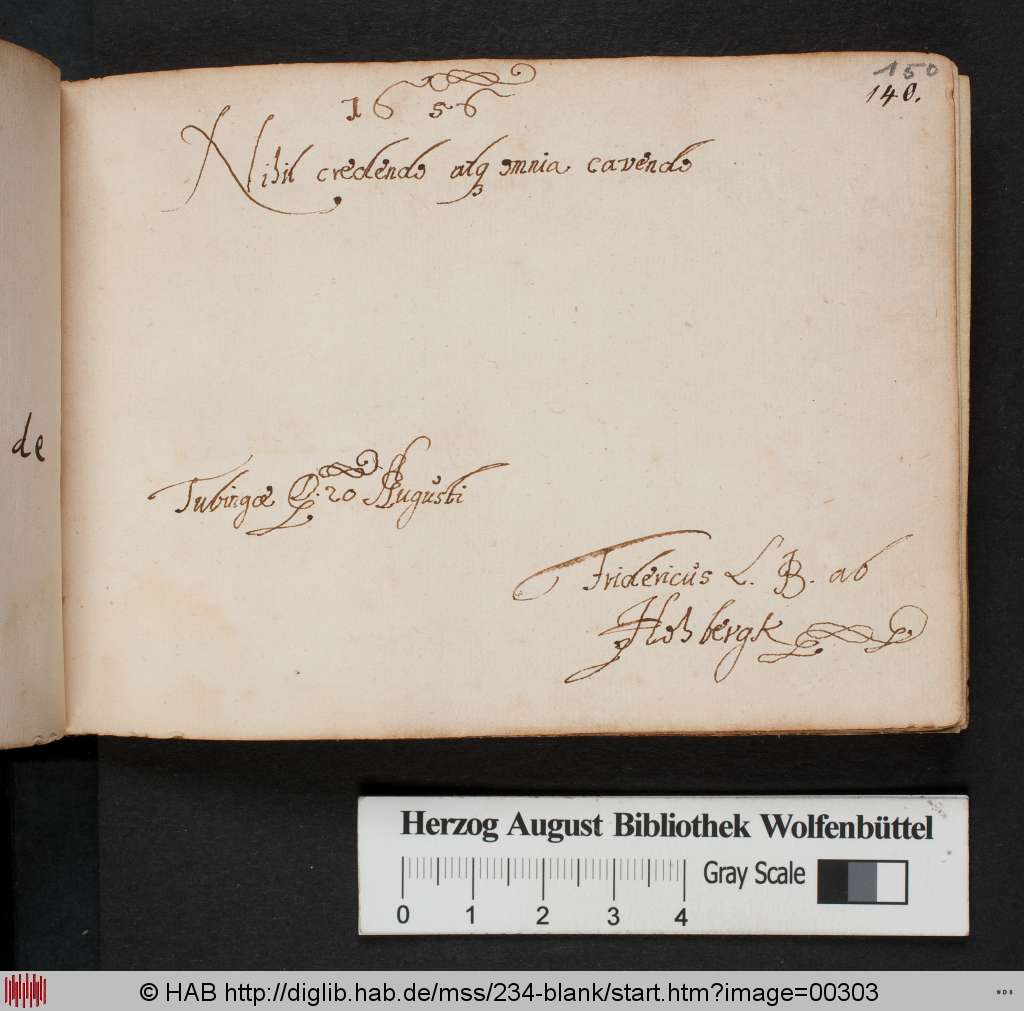 150
140.
1656
Nihil credendo atq3 omnia cavendo
de
Tubingæ D. 20 Augusti
Fridericus L. B. ab
Hohbergk
Herzog August Bibliothek Wolfenbüttel
Gray Scale
0 1 2 3 4
© HAB http://diglib.hab.de/mss/234-blank/start.htm?image=00303